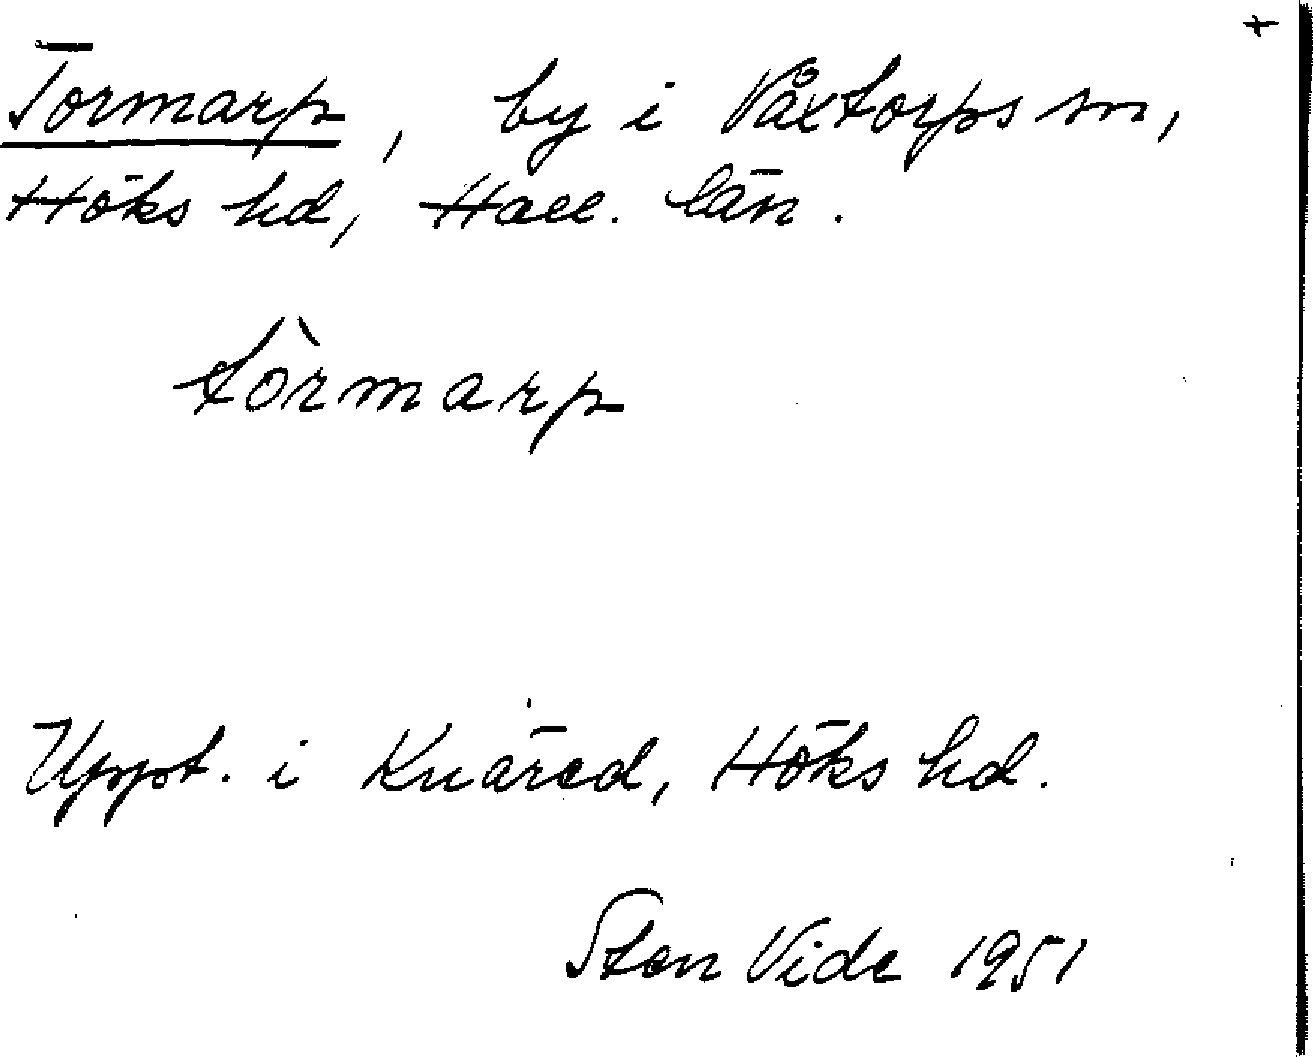 +
Tormarp, by i Våxtorps sn,
Höks hd, Hall. län.
tòrmarp
Uppt. i Knäred, Höks hd.
Sten Vide 1951